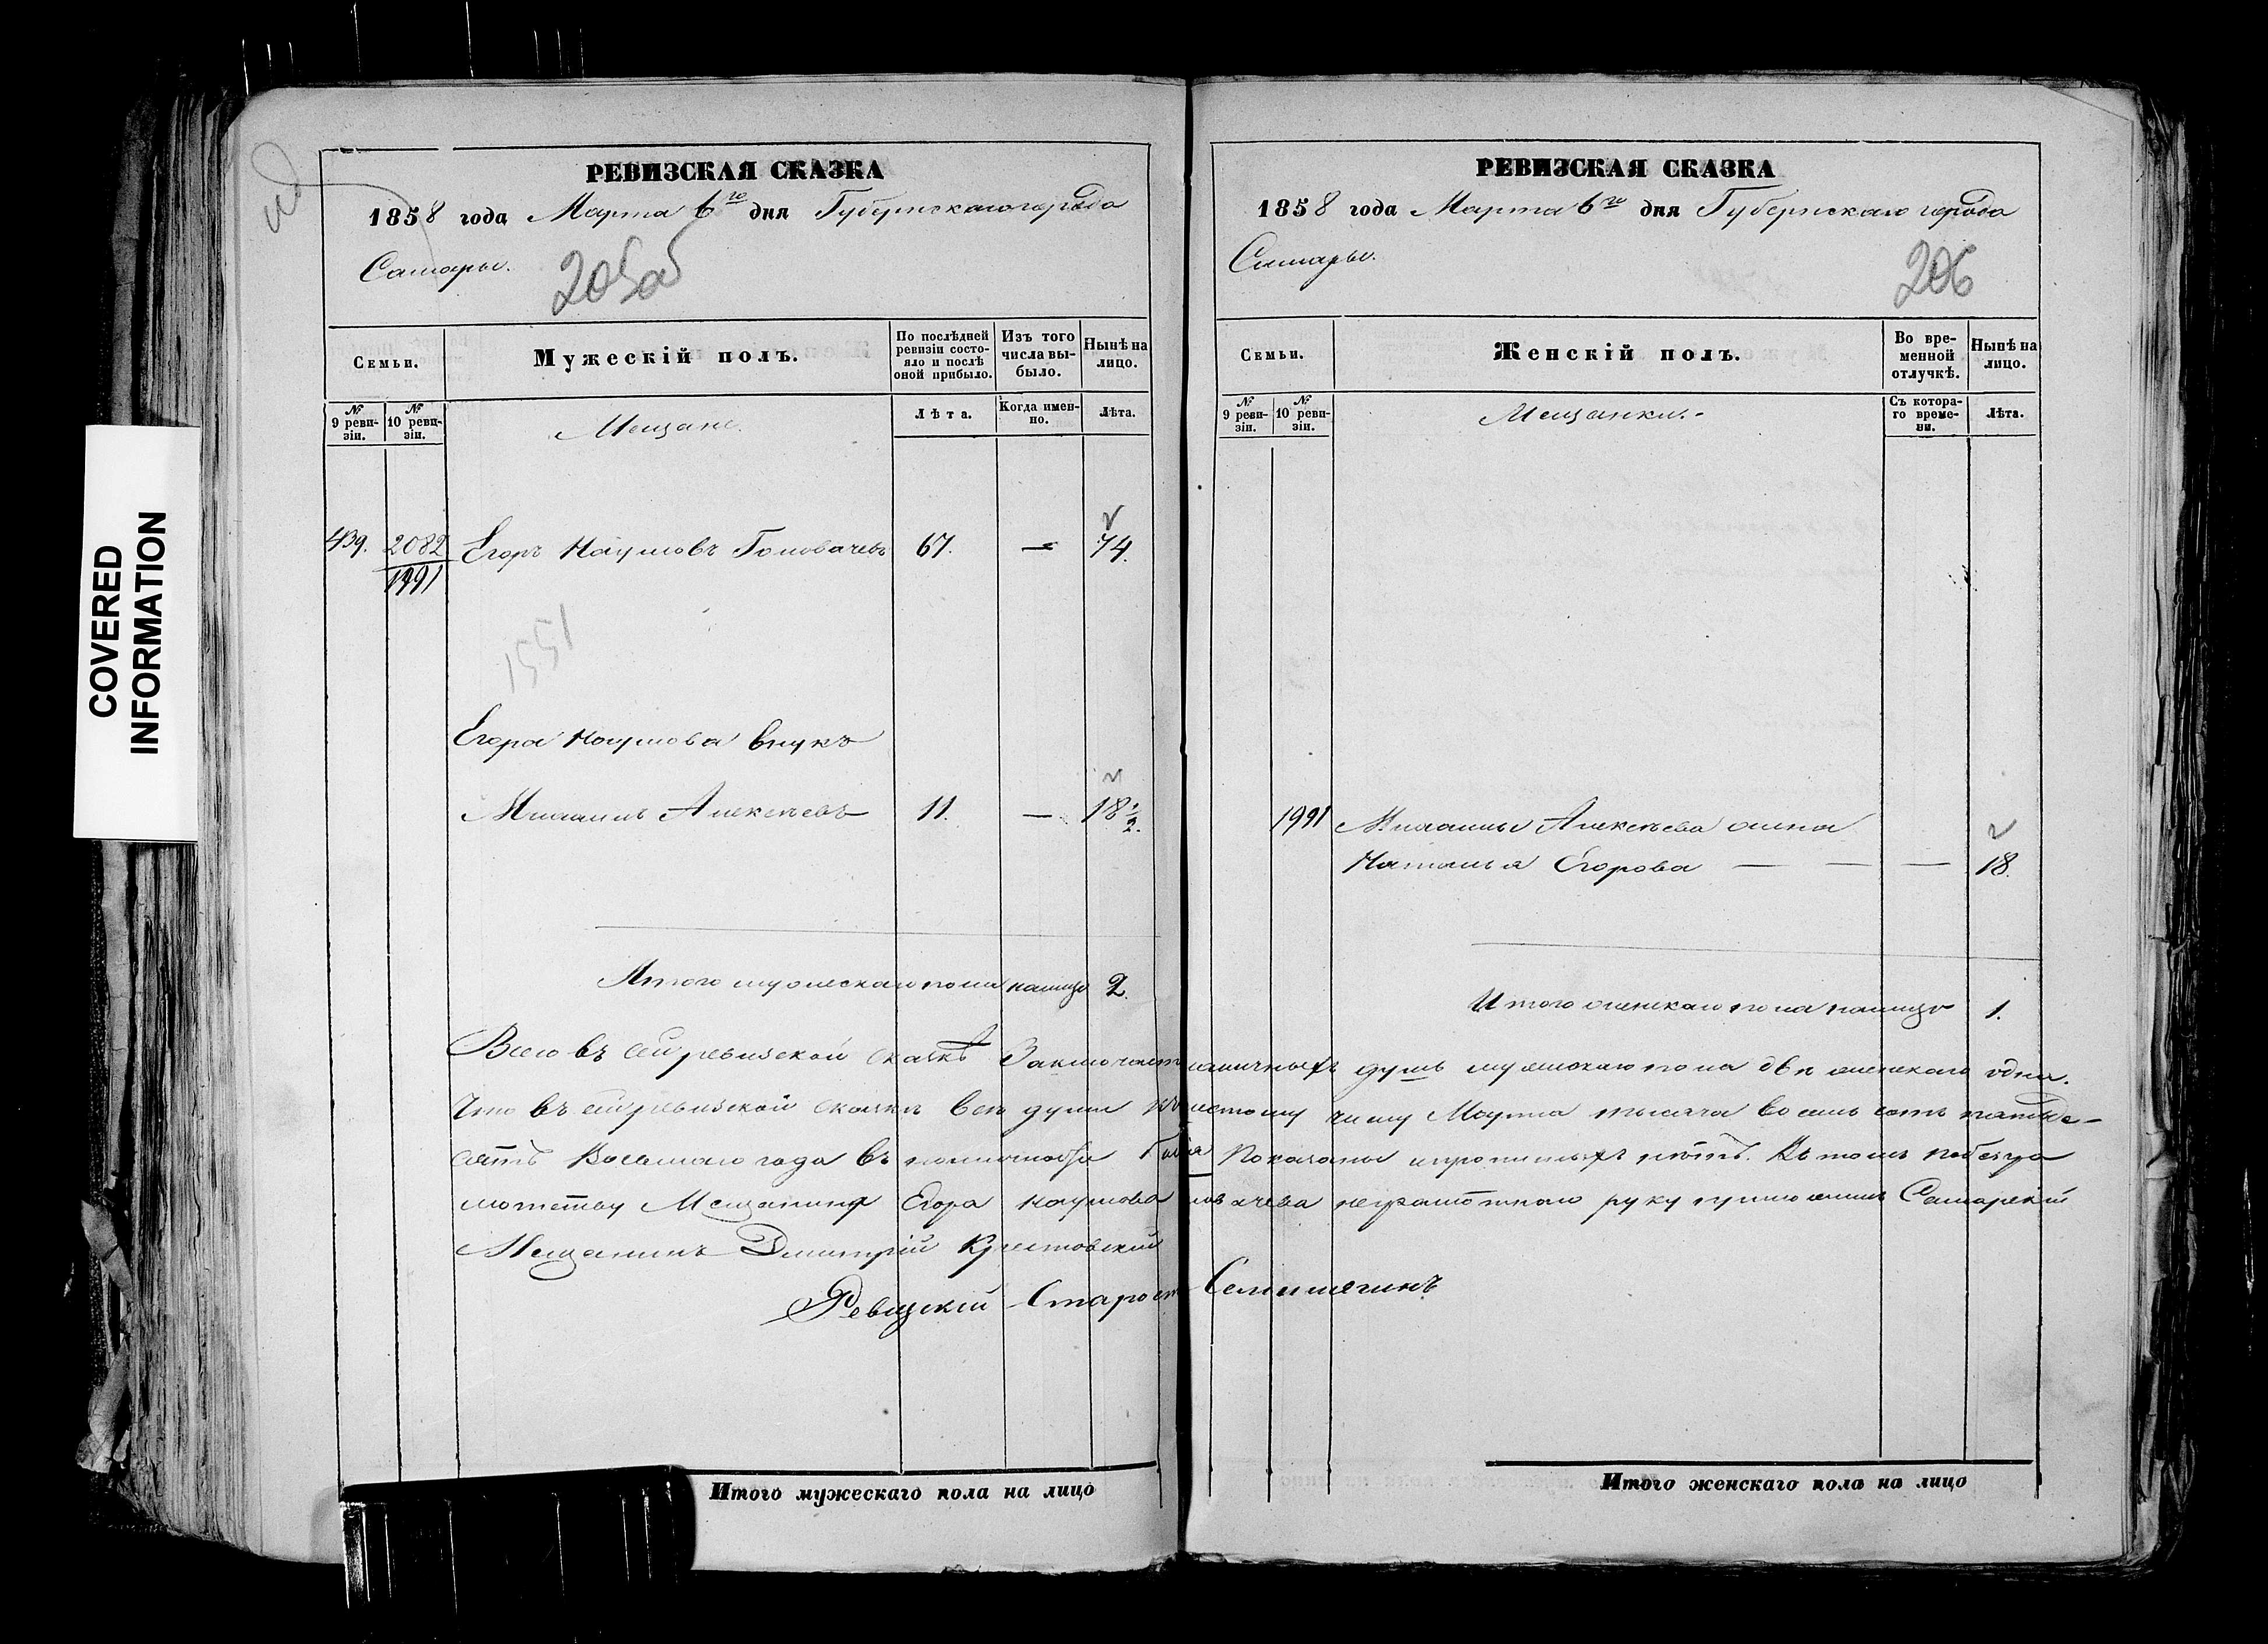 COVERED
INFORMATION
РЕВИЗСКАЯ СКАЗКА
1858 года Марта 6го дня Губернскаго города
Самары.
205об
Семьи.
Мужескій полъ.
По послѣдней ревизіи состояло и послѣ оной прибыло.
Изъ того числа выбыло.
Нынѣ на лицо.
№ 9 ревизіи.
№ 10 ревизіи.
Мещане.
Лѣта.
Когда именно.
Лѣта.
439. 2082 Егоръ Наумовъ Головачевъ 67. — 74.
1991
1551
Егора Наумова внукъ
Михаилъ Алексѣевъ 11. — 18 1/2.
Итого мужескаго пола налицо 2.
РЕВИЗСКАЯ СКАЗКА
1858 года Марта 6го дня Губернскаго города
Самары.
206
Семьи.
Женскій полъ.
Во временной отлучкѣ.
Нынѣ на лицо.
№ 9 ревизіи.
№ 10 ревизіи.
Мещанки.
Съ котораго времени.
Лѣта.
1991 Михаилы Алексѣева жена
Наталья Егорова — — — 18.
Итого женскаго пола налицо 1.
Всего въ сей ревизской сказкѣ Заключает наличныхъ душъ мужескаго пола двѣ женскаго одна.
Что въ сей ревизской сказкѣ все души къ шестому числу Марта тысяча восемь сотъ пятьде-
сятъ Восьмаго года въ наличности Показаны и прописныхъ нѣтъ. Въ томъ по безгра
мотству Мещанина Егора Наумова Головачева неграмотнаго руку приложилъ Самарскій
Мещанинъ Дмитрій Крестовскій
Ревизскій Старост Селиверстинъ
Итого мужескаго пола на лицо
Итого женскаго пола на лицо